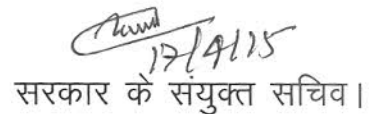 17/9/15
सरकार के संयुक्त सचिव।